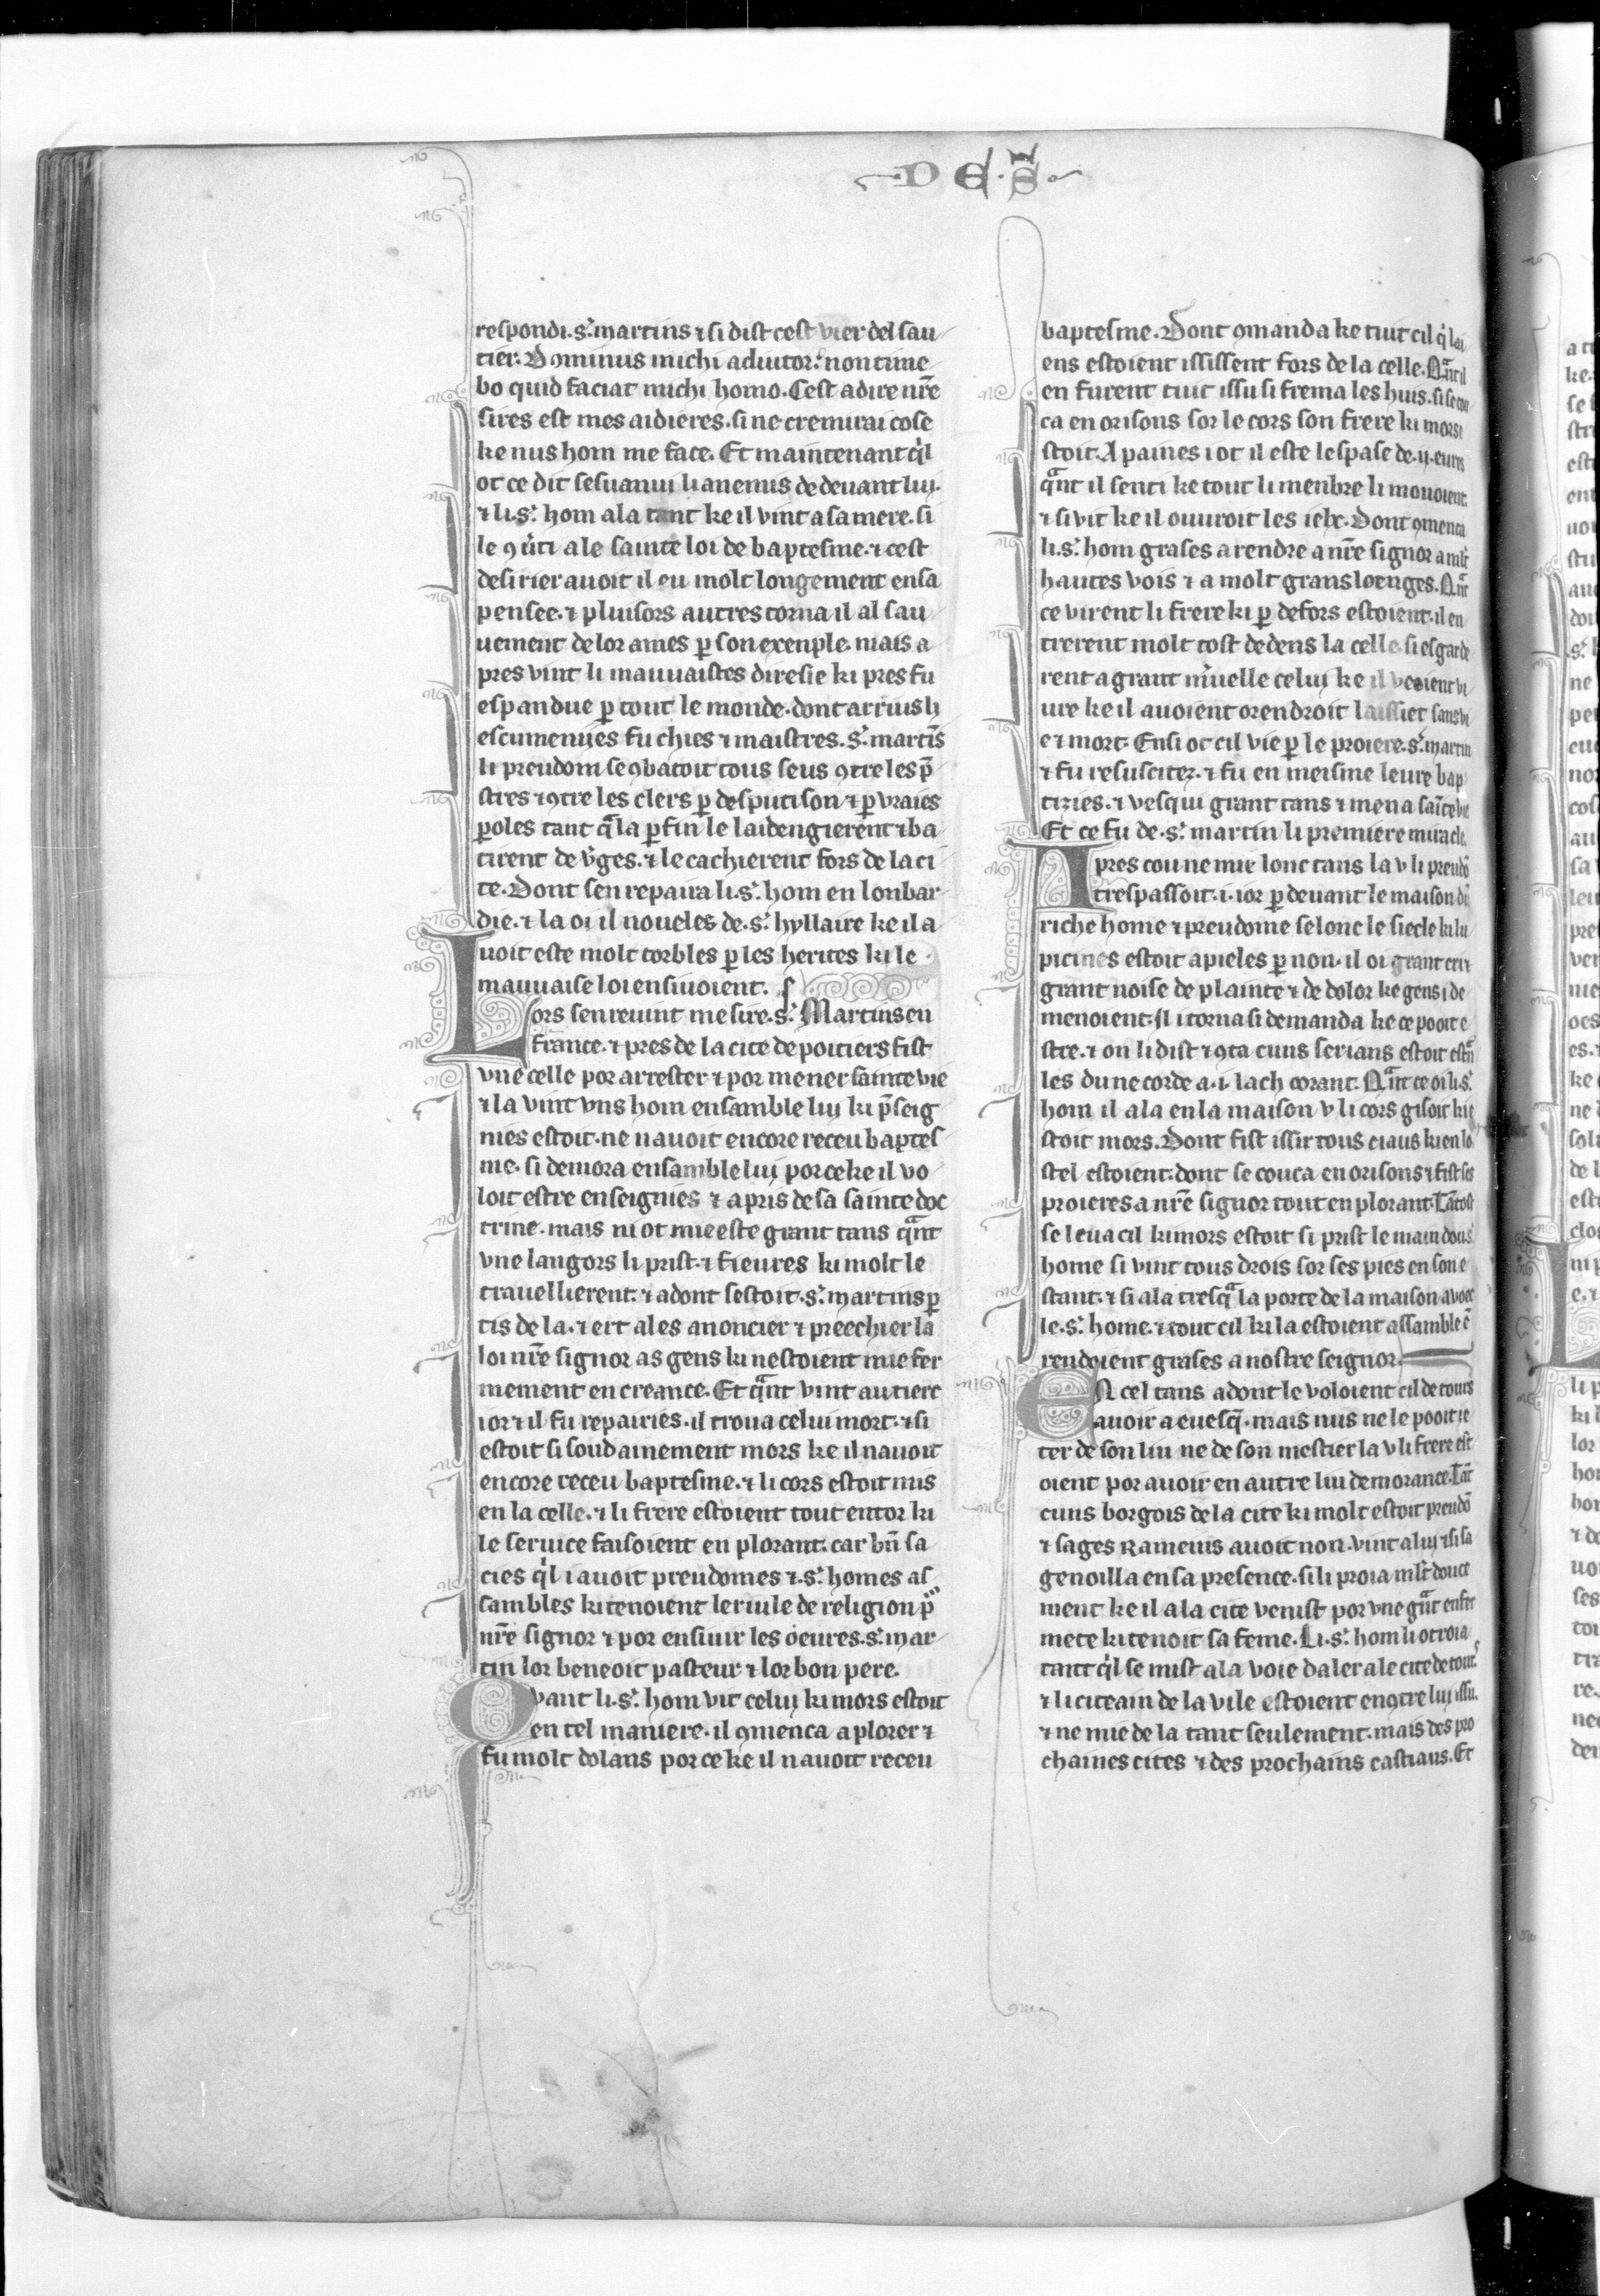 DE·S̃
respondi .s'. martins ⁊ si dist cest vier del sau
tier. Dominus michi adiutor: non time
bo quid faciat michi homo. Cest adire nr̃e
sires est mes aidieres. si ne cremirai cose
ke nus hom me face. Et maintenant qͥl
ot ce dit sesuanui li anemis de deuant lui.
⁊ li .s'. hom ala tant ke il vint a sa mere. si
le ꝯũti a le sainte loi de baptesme. ⁊ cest
desirier auoit il eu molt longement en sa
pensee. ⁊ pluisors autres torna il al sau
uement de lor ames ꝑ son exenple. mais a
pres vint li mauuaistes diresie ki pres fu
espandue ꝑ tout le monde. dont arrius li
escumenijes fu chies ⁊ maistres. s'. martĩs
li preudom se ꝯbatoit tous seus ꝯtre les p̃
stres ⁊ ꝯtre les clers ꝑ desputison ⁊ ꝑ vraies
ꝑoles tant qͣ la ꝑfin le laidengierent ⁊ ba
tirent de v̄ges. ⁊ le cachierent fors de la ci
te. Dont sen repaira li .s'. hom en lonbar
die. ⁊ la oi il noueles de .s'. hyllaire ke il a
uoit este molt torbles ꝑ les herites ki le
mauuaise loi ensiuoient.
Lors sen reuint mesire .s'. Martins en
france. ⁊ pres de la cite de poitiers fist
vne celle por arrester ⁊ por mener sainte vie
⁊ la vint vns hom ensamble lui ki p̃seig
nies estoit. ne nauoit encore receu baptes
me. si demora ensamble lui por ce ke il vo
loit estre enseignies ⁊ apris de sa sainte doc
trine. mais ni ot mie este grant tans qͣnt
vne langors li prist. ⁊ fieures ki molt le
trauellierent. ⁊ adont sestoit .s'. martins ꝑ
tis de la. ⁊ ert ales anoncier ⁊ preechier la
loi nr̃e signor as gens ki nestoient mie fer
mement en creance. Et qͣnt vint au tierc
ior ⁊ il fu repairies. il troua celui mort. ⁊ si
estoit si soudainement mors ke il nauoit
encore receu baptesme. ⁊ li cors estoit mis
en la celle. ⁊ li frere estoient tout entor ki
le seruice faisoient en plorant. car bñ sa
cies qͥl i auoit preudomes ⁊ .s'. homes as
sambles ki tenoient le riule de religion p̃
nr̃e signor ⁊ por ensiuir les oeures .s'. mar
tin lor beneoit pasteur ⁊ lor bon pere.
Qvant li .s'. hom vit celui ki mors estoit
en tel maniere. il ꝯmenca a plorer ⁊
fu molt dolans por ce ke il nauoit receu
baptesme. Dont ꝯmanda ke tuit cil qͥ lai
ens estoient ississent fors de la celle. Qͣnt il
en furent tuit issu si frema les huis. si se cou
ca en orisons sor le cors son frere ki mors e
stoit. A paines i ot il este lespase de .ij. eures
qͣnt il senti ke tout li menbre li mouoient.
⁊ si vit ke il ouuroit les iebx. Dont ꝯmenca
li .s'. hom grases a rendre a nr̃e signor a ml't
hautes vois ⁊ a molt grans loenges. Qͣnt
ce virent li frere ki ꝑ defors estoient. il en
trerent molt tost dedens la celle. si esgarde
rent a grant m̃uelle celui ke il veoient vi
ure ke il auoient orendroit laissiet sans vi
e ⁊ mort. Ensi ot cil vie ꝑ le proiere .s'. martin
⁊ fu resuscitez. ⁊ fu en meisme leure bap
tizies. ⁊ vesqui grant tans ⁊ mena saĩte vie
Et ce fu de .s'. martin li premiere miracle.
Apres cou ne mie lonc tans la v li preudõ
trespassoit .i. ior ꝑ deuant le maison dũ
riche home ⁊ preudome selonc le siecle ki lu
picines estoit apieles ꝑ non. il oi grant cri ⁊
grant noise de plainte ⁊ de dolor ke gens i de
menoient. Il i torna si demanda ke ce pooit e
stre. ⁊ on li dist ⁊ ꝯta cuns serians estoit estrã
les dune corde a .i. lach corant. Qͣnt ce oi li .s'.
hom il ala en la maison v li cors gisoit ki e
stoit mors. Dont fist issir tous ciaus ki en lo
stel estoient. dont se couca en orisons ⁊ fist ses
proieres a nr̃e signor tout en plorant. Tãtost
se leua cil ki mors estoit si prist le main dou .s'.
home si vint tous drois sor ses pies en son e
stant. ⁊ si ala tresqͣ la porte de la maison avoec
le .s'. home. ⁊ tout cil ki la estoient assamble ẽ
rendoient grases a nostre seignor.
EN cel tans adont le voloient cil de tours
auoir a euesq̃. mais nus ne le pooit ie
ter de son liu ne de son mestier la v li frere est
oient por auoir en autre liu demorance. Tãt
cuns borgois de la cite ki molt estoit preudõ
⁊ sages Rameius auoit non. vint a lui ⁊ si sa
genoilla en sa presence. si li proia ml't douce
ment ke il a la cite venist por vne gͣnt enfer
mete ki tenoit sa feme. Li .s'. hom li otroia
tant qͥl se mist a la voie daler a le cite de tours
⁊ li citeain de la vile estoient enꝯtre lui issu.
⁊ ne mie de la tant seulement. mais des pro
chaines cites ⁊ des prochains castiaus. Et